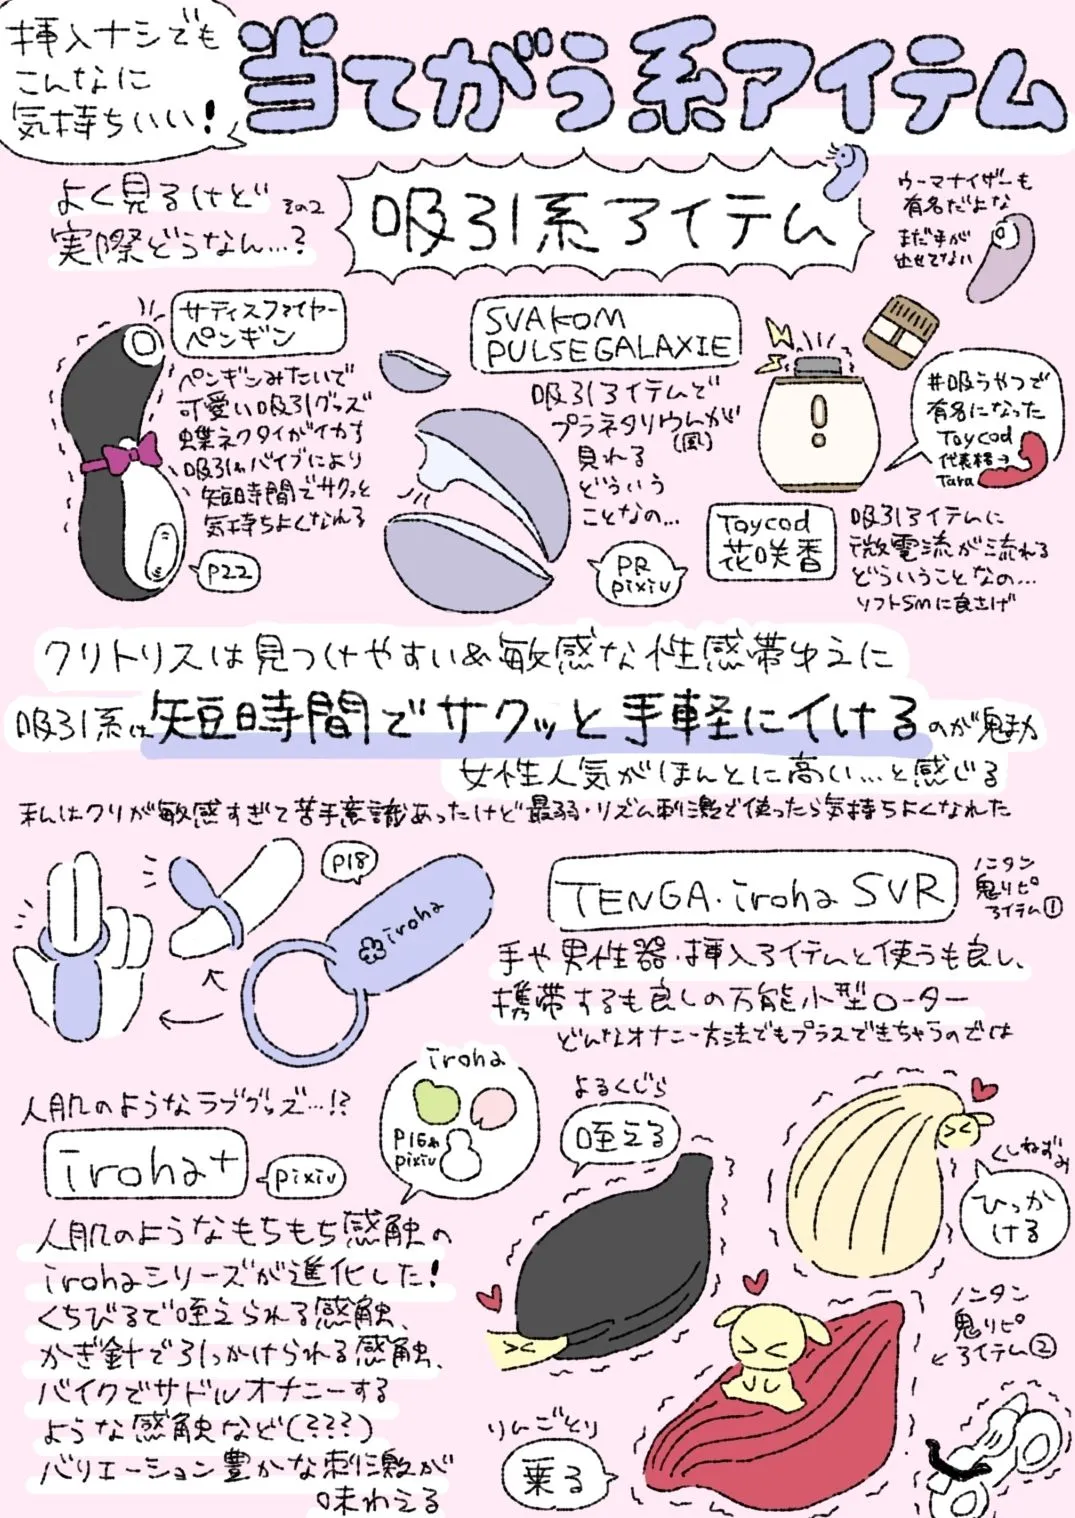 挿入ナシでも
こんなに
気持ちいい!
当てがう系アイテム
よく見るけど
その2
実際どうなん…?
吸引系アイテム
ウーマナイザーも
有名だよな
まだ手が
出せてない
サティスファイヤー
ペンギン
ペンギンみたいで
可愛い吸引グッズ
蝶ネクタイがイカす
吸引&バイブにより
短時間でサクッと
気持ちよくなれる
P22
SVAKOM
PULSE GALAXIE
吸引アイテムで
プラネタリウムが
(風)
見れる
どういう
ことなの…
PR
pixiv
#吸うやつで
有名になった
Toycod
代表格→
Tara
Toycod
花咲香
吸引アイテムに
微電流が流れる
どういうことなの…
ソフトSMに良さげ
クリトリスは見つけやすい&敏感な性感帯ゆえに
吸引系は短時間でサクッと手軽にイけるのが魅力
女性人気がほんとに高い…と感じる
私はクリが敏感すぎて苦手意識あったけど最弱・リズム刺激で使ったら気持ちよくなれた
P18
iroha
TENGA・iroha SVR
ノンタン
鬼リピ
アイテム①
手や男性器・挿入アイテムと使うも良し、
携帯するも良しの万能小型ローター
どんなオナニー方法でもプラスできちゃうのでは
人肌のようなラブグッズ…!?
iroha+
pixiv
iroha
P16&
pixiv
人肌のようなもちもち感触の
irohaシリーズが進化した!
くちびるで咥えられる感触、
かぎ針で引っかけられる感触、
バイクでサドルオナニーする
ような感触など(???)
バリエーション豊かな刺激が
味わえる
よるくじら
咥える
くしねずみ
ひっか
ける
りんごとり
乗る
ノンタン
鬼リピ
アイテム②